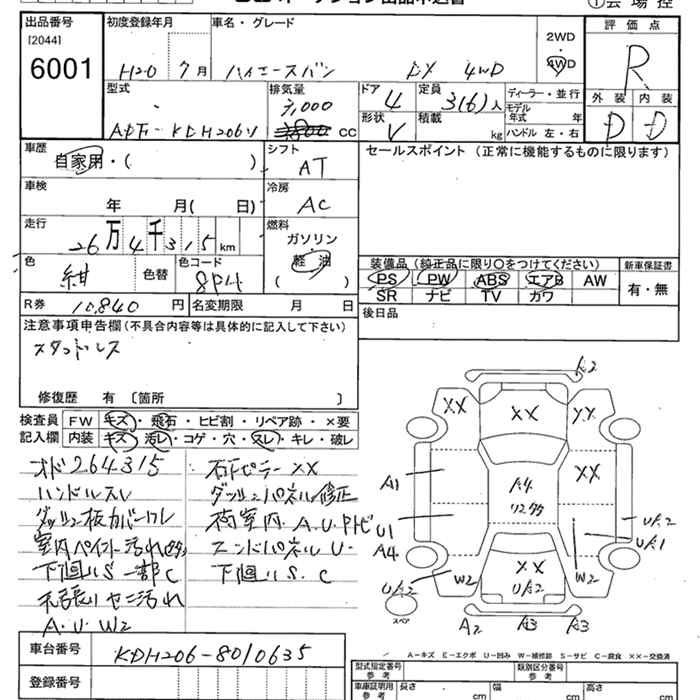 出品番号 初度登録年月 車名・グレード 2WD 評価点
[2044]
6001
H20 7月 ハイエースバン DX 4WD 4WD R
型式 排気量 ドア 定員 ディーラー・並行 外装 内装
2,000 4 3(6)人 モデル年式 年
ADF-KDH206V cc 形状 V 積載 kg ハンドル 左・右 D D
車歴 シフト セールスポイント (正常に機能するものに限ります)
自家用・( ) AT
車検 冷房
年 月( 日) AC
走行 燃料
26万4千315km ガソリン
色 色替 色コード 軽油
紺 8P4 ( )
装備品 (純正品に限り○をつけてください) 新車保証書
PS PW ABS エアB AW 有・無
SR ナビ TV カワ
R券 10,840円 名変期限 月 日
後日品
注意事項申告欄 (不具合内容等は具体的に記入して下さい)
スタッドレス
修復歴 有 〔箇所 〕
検査員 FW キズ・飛石・ヒビ割・リペア跡・×要
記入欄 内装 キズ・汚レ・コゲ・穴・スレ・キレ・破レ
オド264315
ハンドルスレ
室内ペイント汚れ
下廻りS 一部C
A.U.W2
右Fピラー XX
ダッシュパネル修正
荷室内 A.U
エンドパネルU
下廻りS.C
A2
XX XX YY
A1 XX
A4
U1
A4 UA2
UA1
UA2 W2 XX W2
UA2
スペア
A2 A3 A3
A-キズ E-エクボ U-凹み W-補修跡 S-サビ C-腐食 ××-交換済
車台番号 KDH206-8010635
登録番号
型式指定番号 参考 類別区分番号 参考
車庫証明用 参考 長さ cm 幅 cm 高さ cm